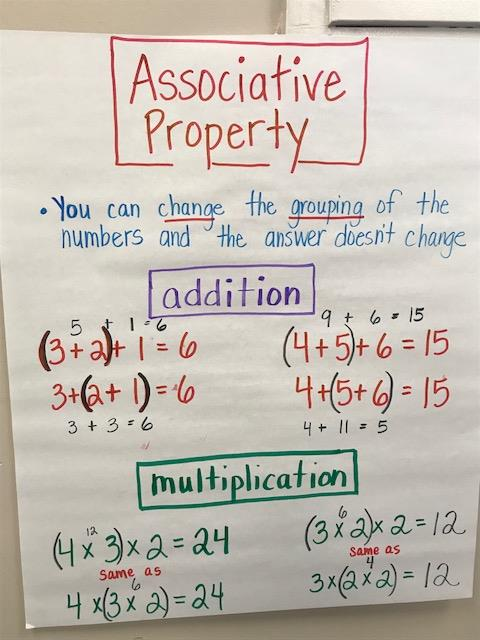 Associative
Property
• You can change the grouping of the
numbers and the answer doesn't change
addition
5 + 1 = 6
(3+2)+ 1 = 6
3+(2+ 1) = 6
3 + 3 = 6
9 + 6 = 15
(4+5)+6 = 15
4+(5+6) = 15
4 + 11 = 5
multiplication
12
(4 x 3) x 2 = 24
same as
6
4 x(3 x 2) = 24
6
(3 x 2)x 2 = 12
same as
4
3x(2 x 2) = 12